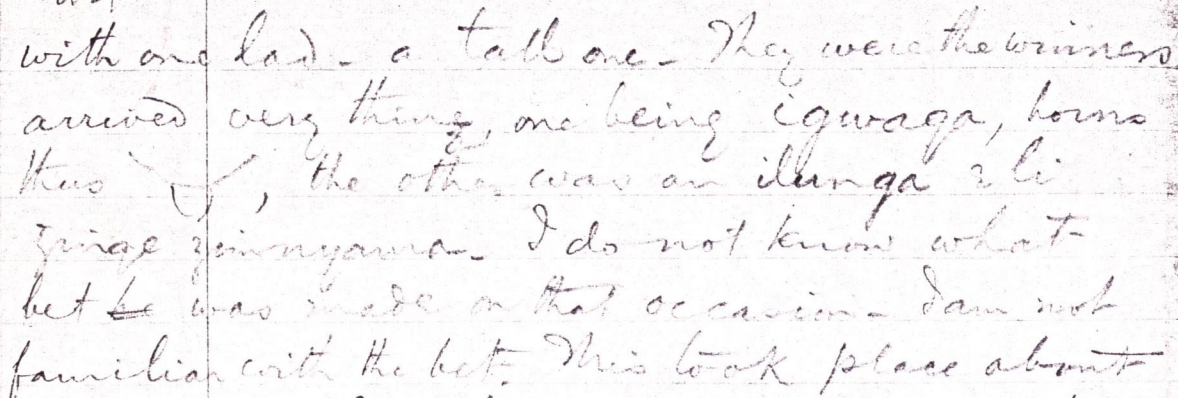 with one lad - a tall one - They were the winners
arrived very thin, one being igwaga, horns
thus , the other was an ilunga & li
zinge zimnyama - I do not know what
bet was made on that occasion - I am not
familiar with the bet. This took place about